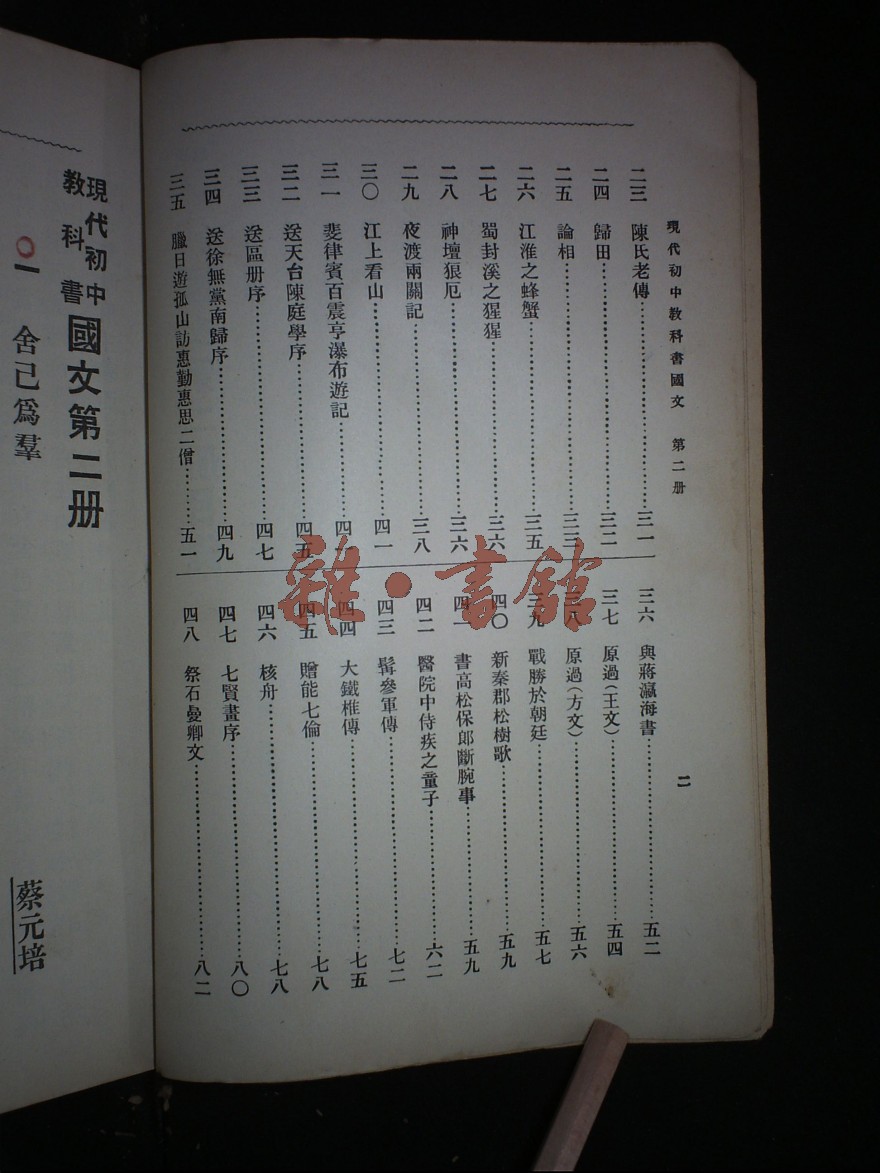 現代初中教科書國文 第二册
二三 陳氏老傳 三一
二四 歸田 三二
二五 論相 三三
二六 江淮之蜂蟹 三五
二七 蜀封溪之猩猩 三六
二八 神壇狼厄 三六
二九 夜渡兩關記 三八
三〇 江上看山 四一
三一 斐律賓百震亨瀑布遊記 四一
三二 送天台陳庭學序 四五
三三 送區册序 四七
三四 送徐無黨南歸序 四九
三五 臘日遊孤山訪惠勤惠思二僧 五一
三六 與蔣瀛海書 五二
三七 原過(王文) 五四
三八 原過(方文) 五六
三九 戰勝於朝廷 五七
四〇 新秦郡松樹歌 五九
四一 書高松保郎斷腕事 五九
四二 醫院中侍疾之童子 六二
四三 髯參軍傳 七二
四四 大鐵椎傳 七五
四五 贈能七倫 七八
四六 核舟 七八
四七 七賢畫序 八〇
四八 祭石曼卿文 八二
二
現代初中教科書國文第二册
一 舍己爲羣
蔡元培
雜·書館